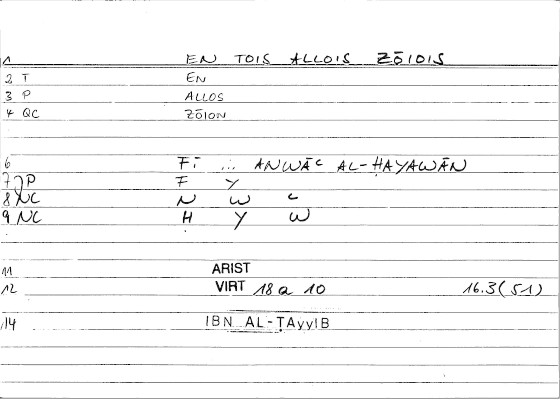 1 EN TOIS ALLOIS ZŌIOIS
2 T EN
3 P ALLOS
4 QC ZŌION
6 Fī ... ANWĀC AL-ḤAYAWĀN
7 P F Y
8 NC N W C
9 NC Ḥ Y W
11 ARIST
12 VIRT 18a 10 16.3(51)
14 IBN AL-ṬAyyIB